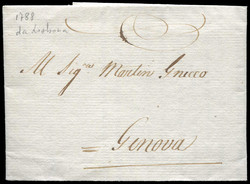 1788
da Lisbona
Al Sig.re Martin Gnecco
= Genova